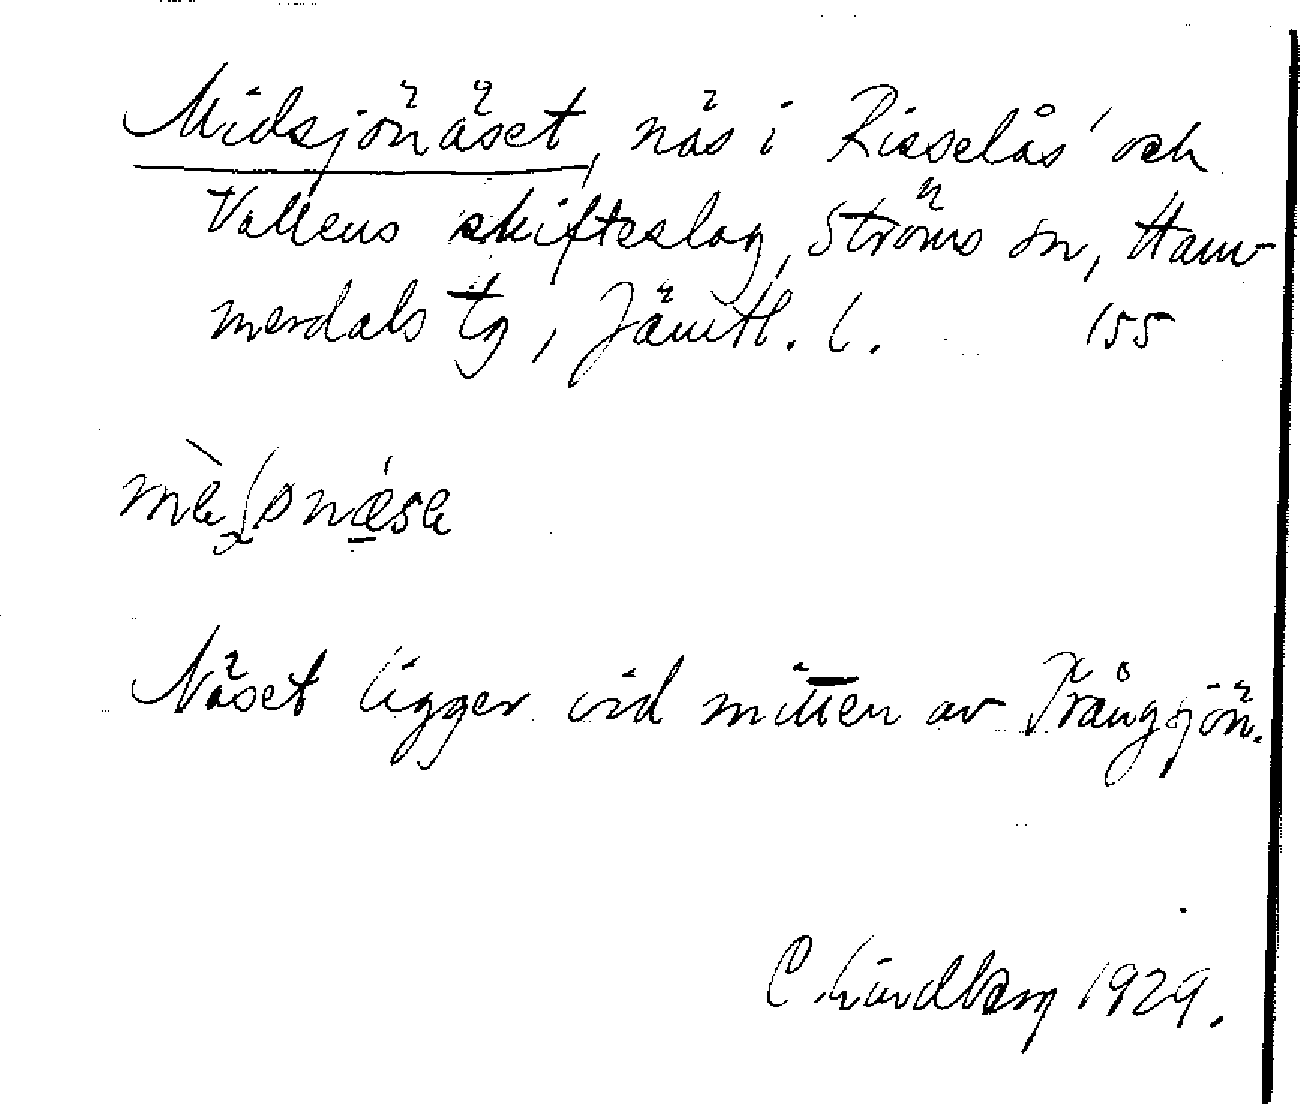 Midsjönäset, näs i Risselås och
Vallens skifteslag, Ströms sn, Ham-
merdals tg, Jämtl. l. 155
Näset ligger vid mitten av Trångsjön.
C. Lindberg 1929.